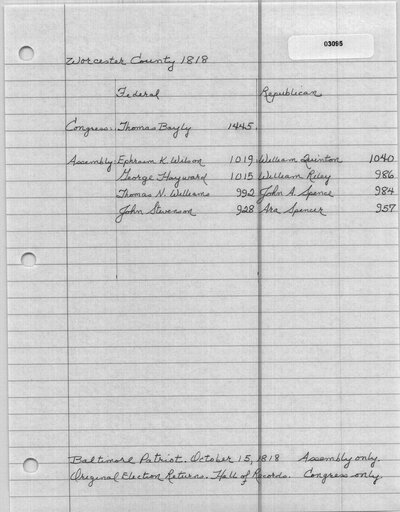 03095
Worcester County 1818
Federal Republican
Congress: Thomas Bayly 1445.
Assembly: Ephraim K. Wilson 1019 William Quinton 1040
George Hayward 1015 William Riley 986
Thomas N. Williams 992 John A. Spence 984
John Stevenson 928 Ara Spencer 957
Baltimore Patriot. October 15, 1818 Assembly only.
Original Election Returns. Hall of Records. Congress only.